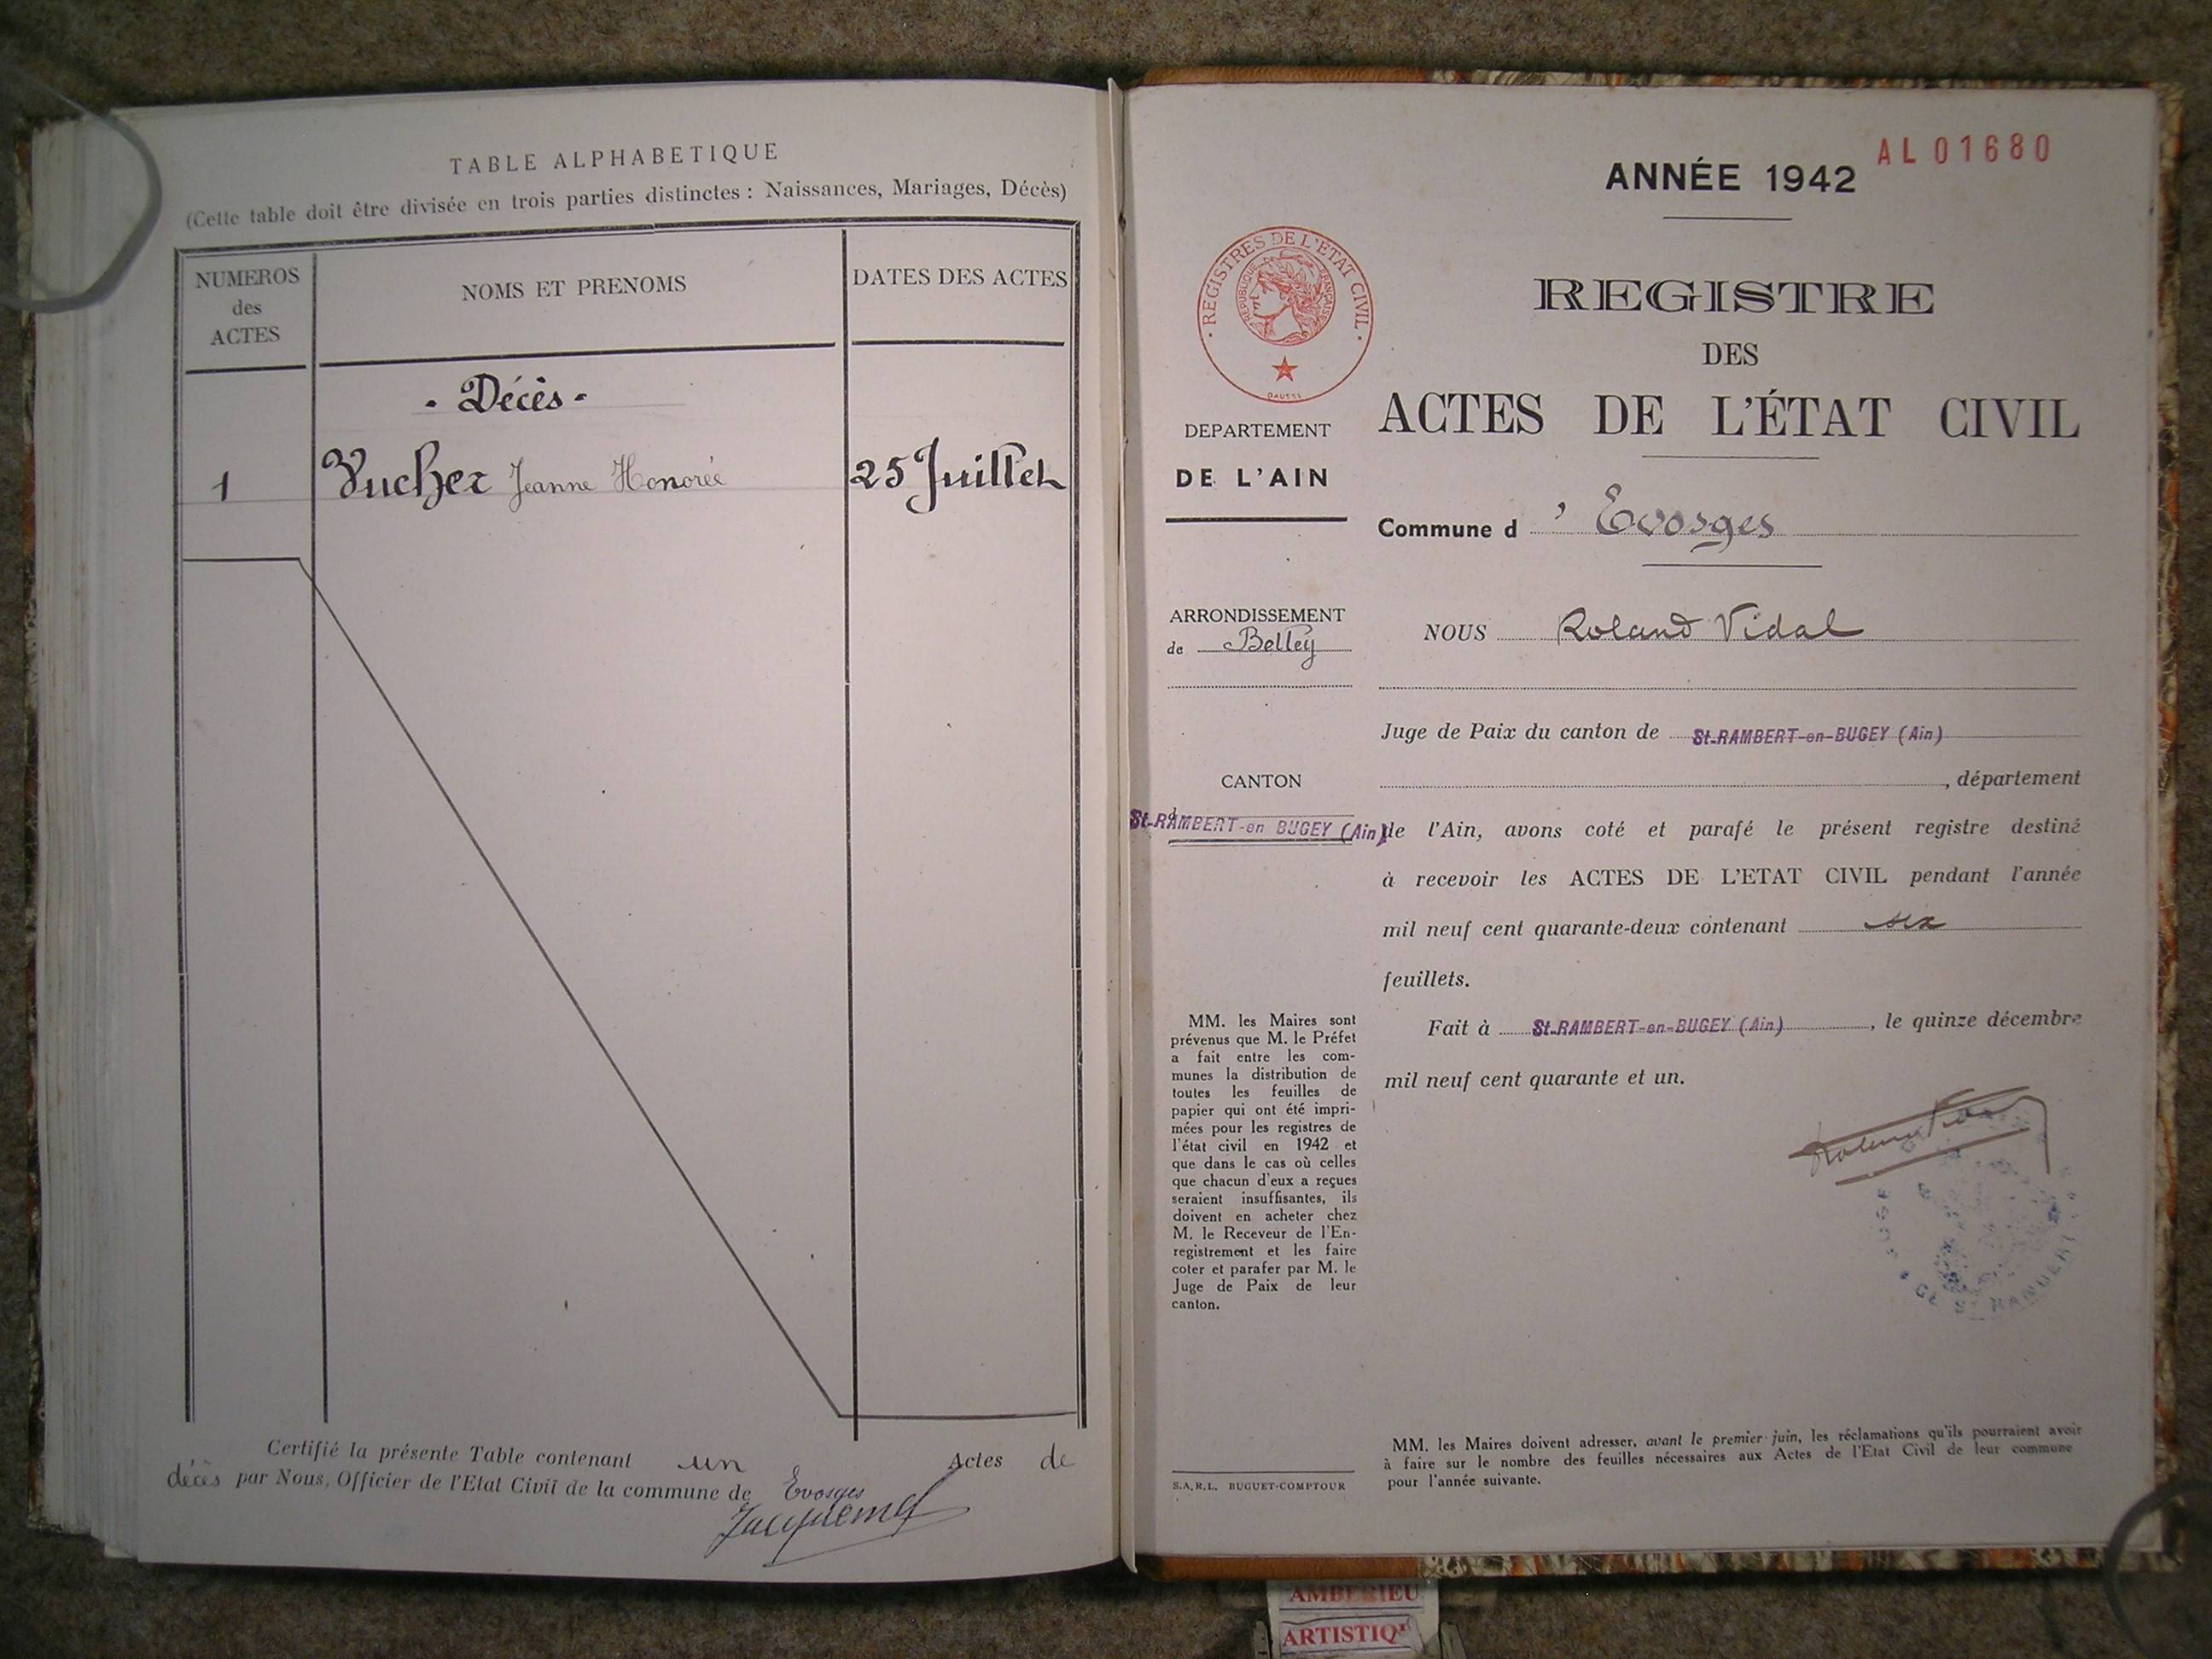 TABLE ALPHABETIQUE
(Cette table doit être divisée en trois parties distinctes : Naissances, Mariages, Décès)
NUMEROS
des
ACTES
NOMS ET PRENOMS
DATES DES ACTES
- Décès -
1 Vucher Jeanne Honorée 25 Juillet
Certifié la présente Table contenant un Actes de
décès par Nous, Officier de l'Etat Civil de la commune de Evosges
Jacquemet
AL 01680
ANNÉE 1942
· REGISTRES DE L'ETAT CIVIL ·
REPUBLIQUE FRANÇAISE
REGISTRE
DES
ACTES DE L'ÉTAT CIVIL
DEPARTEMENT
DE L'AIN
Commune d ' Evosges
ARRONDISSEMENT
de Belley
NOUS Roland Vidal
Juge de Paix du canton de St-RAMBERT-en-BUGEY (Ain)
, département
CANTON
St-RAMBERT-en BUGEY (Ain)
de l'Ain, avons coté et parafé le présent registre destiné
à recevoir les ACTES DE L'ETAT CIVIL pendant l'année
mil neuf cent quarante-deux contenant six
feuillets.
Fait à St-RAMBERT-en-BUGEY (Ain) , le quinze décembre
mil neuf cent quarante et un.
MM. les Maires sont
prévenus que M. le Préfet
a fait entre les com-
munes la distribution de
toutes les feuilles de
papier qui ont été impri-
mées pour les registres de
l'état civil en 1942 et
que dans le cas où celles
que chacun d'eux a reçues
seraient insuffisantes, ils
doivent en acheter chez
M. le Receveur de l'En-
registrement et les faire
coter et parafer par M. le
Juge de Paix de leur
canton.
MM. les Maires doivent adresser, avant le premier juin, les réclamations qu'ils pourraient avoir
à faire sur le nombre des feuilles nécessaires aux Actes de l'Etat Civil de leur commune
pour l'année suivante.
S.A.R.L. BUGUET-COMPTOUR
AMBERIEU
ARTISTIQ